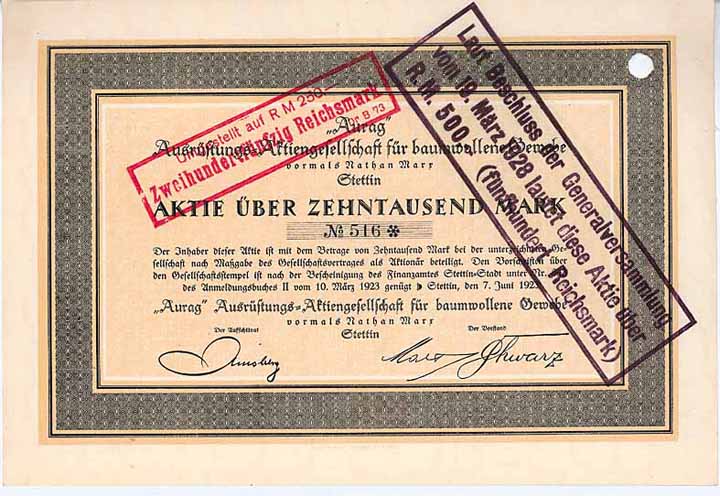 Umgestellt auf RM 250.—
Zweihundertfünfzig Reichsmark
Nr B 73
Laut Beschluss der Generalversammlung
vom 19. März 1928 lautet diese Aktie über
R.M. 500.- (fünfhundert Reichsmark)
„Aurag"
Ausrüstungs-Aktiengesellschaft für baumwollene Gewebe
vormals Nathan Marx
Stettin
AKTIE ÜBER ZEHNTAUSEND MARK
№ 516 ✻
Der Inhaber dieser Aktie ist mit dem Betrage von Zehntausend Mark bei der unterzeichneten Ge-
sellschaft nach Maßgabe des Gesellschaftsvertrages als Aktionär beteiligt. Den Vorschriften über
den Gesellschaftsstempel ist nach der Bescheinigung des Finanzamtes Stettin-Stadt unter Nr.
des Anmeldungsbuches II vom 10. März 1923 genügt Stettin, den 7. Juni 192
„Aurag" Ausrüstungs=Aktiengesellschaft für baumwollene Gewebe
vormals Nathan Marx
Stettin
Der Aufsichtsrat
Der Vorstand
Marx Schwarz